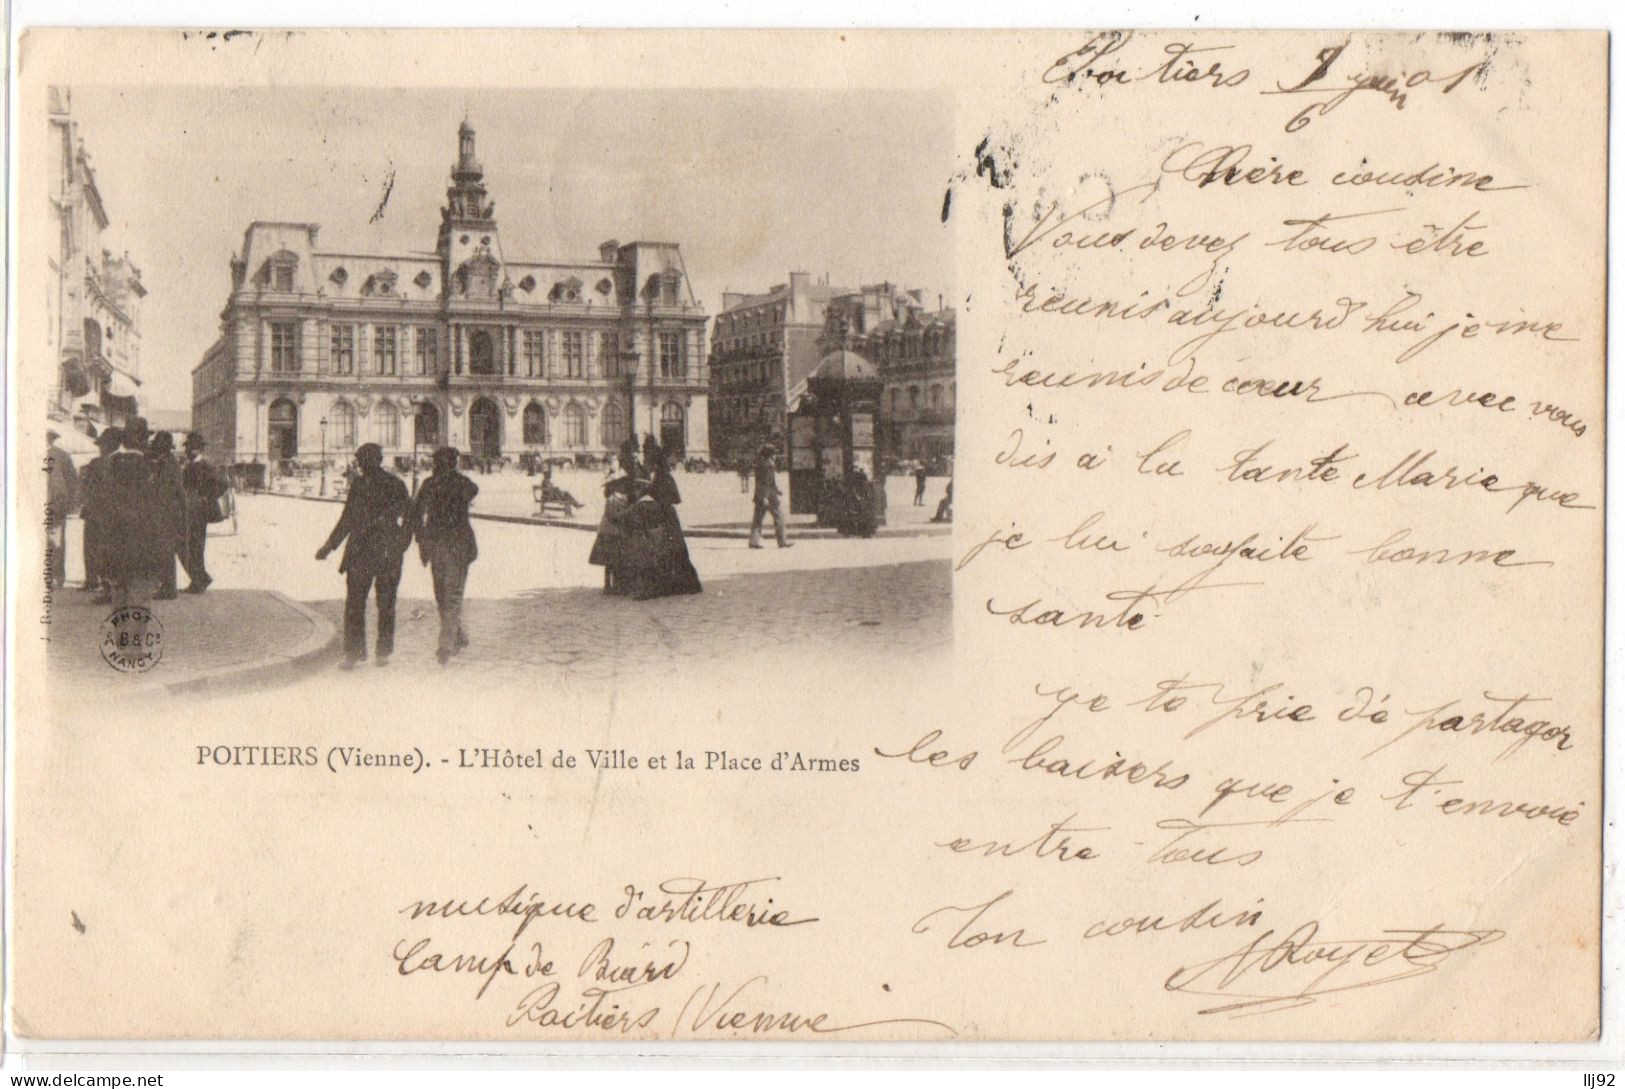 Poitiers 7 juin 01
6
Chère cousine
Vous devez tous être
reunis aujourd hui je me
reunis de cœur avec vous
dis a la tante Marie que
je lui souhaite bonne
santé
Je te prie de partager
les baisers que je t'envoie
entre tous
Ton cousin
Royet
J. Robuchon phot 43
PHOT
A.B & Cº
NANCY
POITIERS (Vienne). - L'Hôtel de Ville et la Place d'Armes
musique d'artillerie
Camp de Biard
Poitiers (Vienne
delcampe.net
llj92